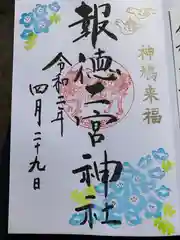 神鳩来福
報徳二宮神社
令和二年
四月二十九日